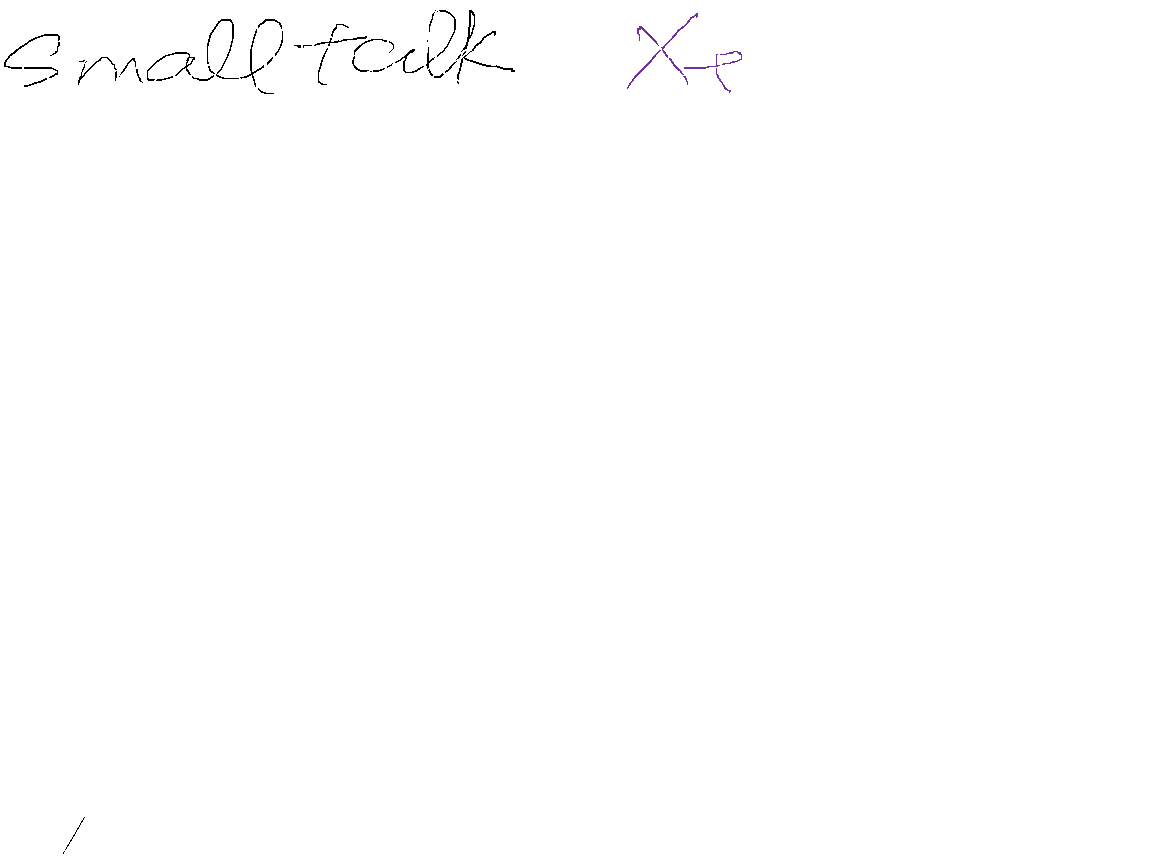 small talk